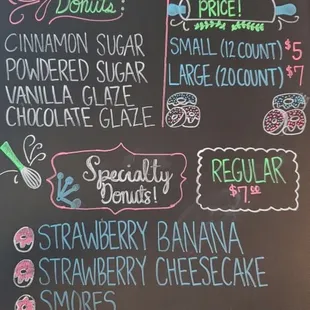 Donuts
CINNAMON SUGAR
POWDERED SUGAR
VANILLA GLAZE
CHOCOLATE GLAZE
PRICE!
SMALL (12 COUNT) $5
LARGE (20 COUNT) $7
Specialty
Donuts!
REGULAR
$7.00
STRAWBERRY BANANA
STRAWBERRY CHEESECAKE
SMORES